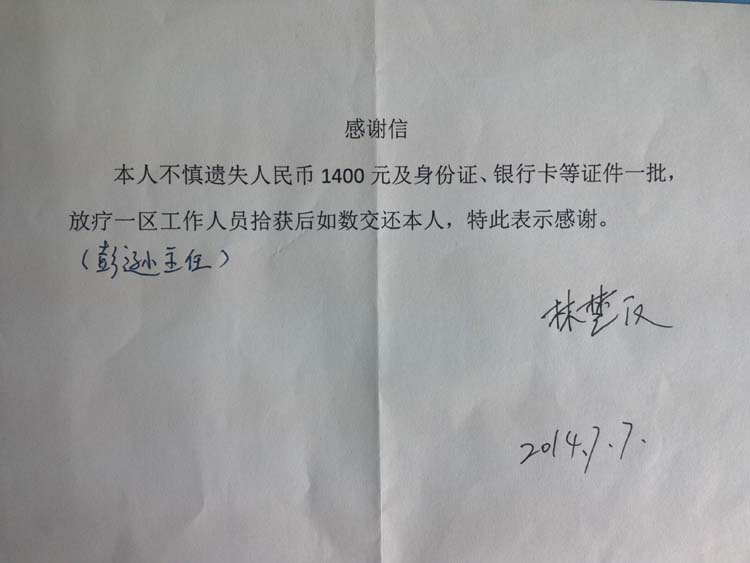 感谢信
本人不慎遗失人民币 1400 元及身份证、银行卡等证件一批，
放疗一区工作人员拾获后如数交还本人，特此表示感谢。
（彭逊主任）
林楚
2014.7.7.